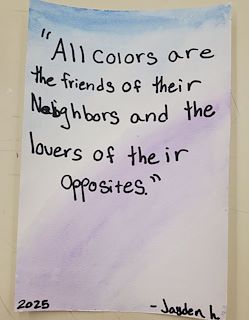 "All Colors are
the friends of their
Neighbors and the
lovers of their
Opposites."
2025
- Jayden h.